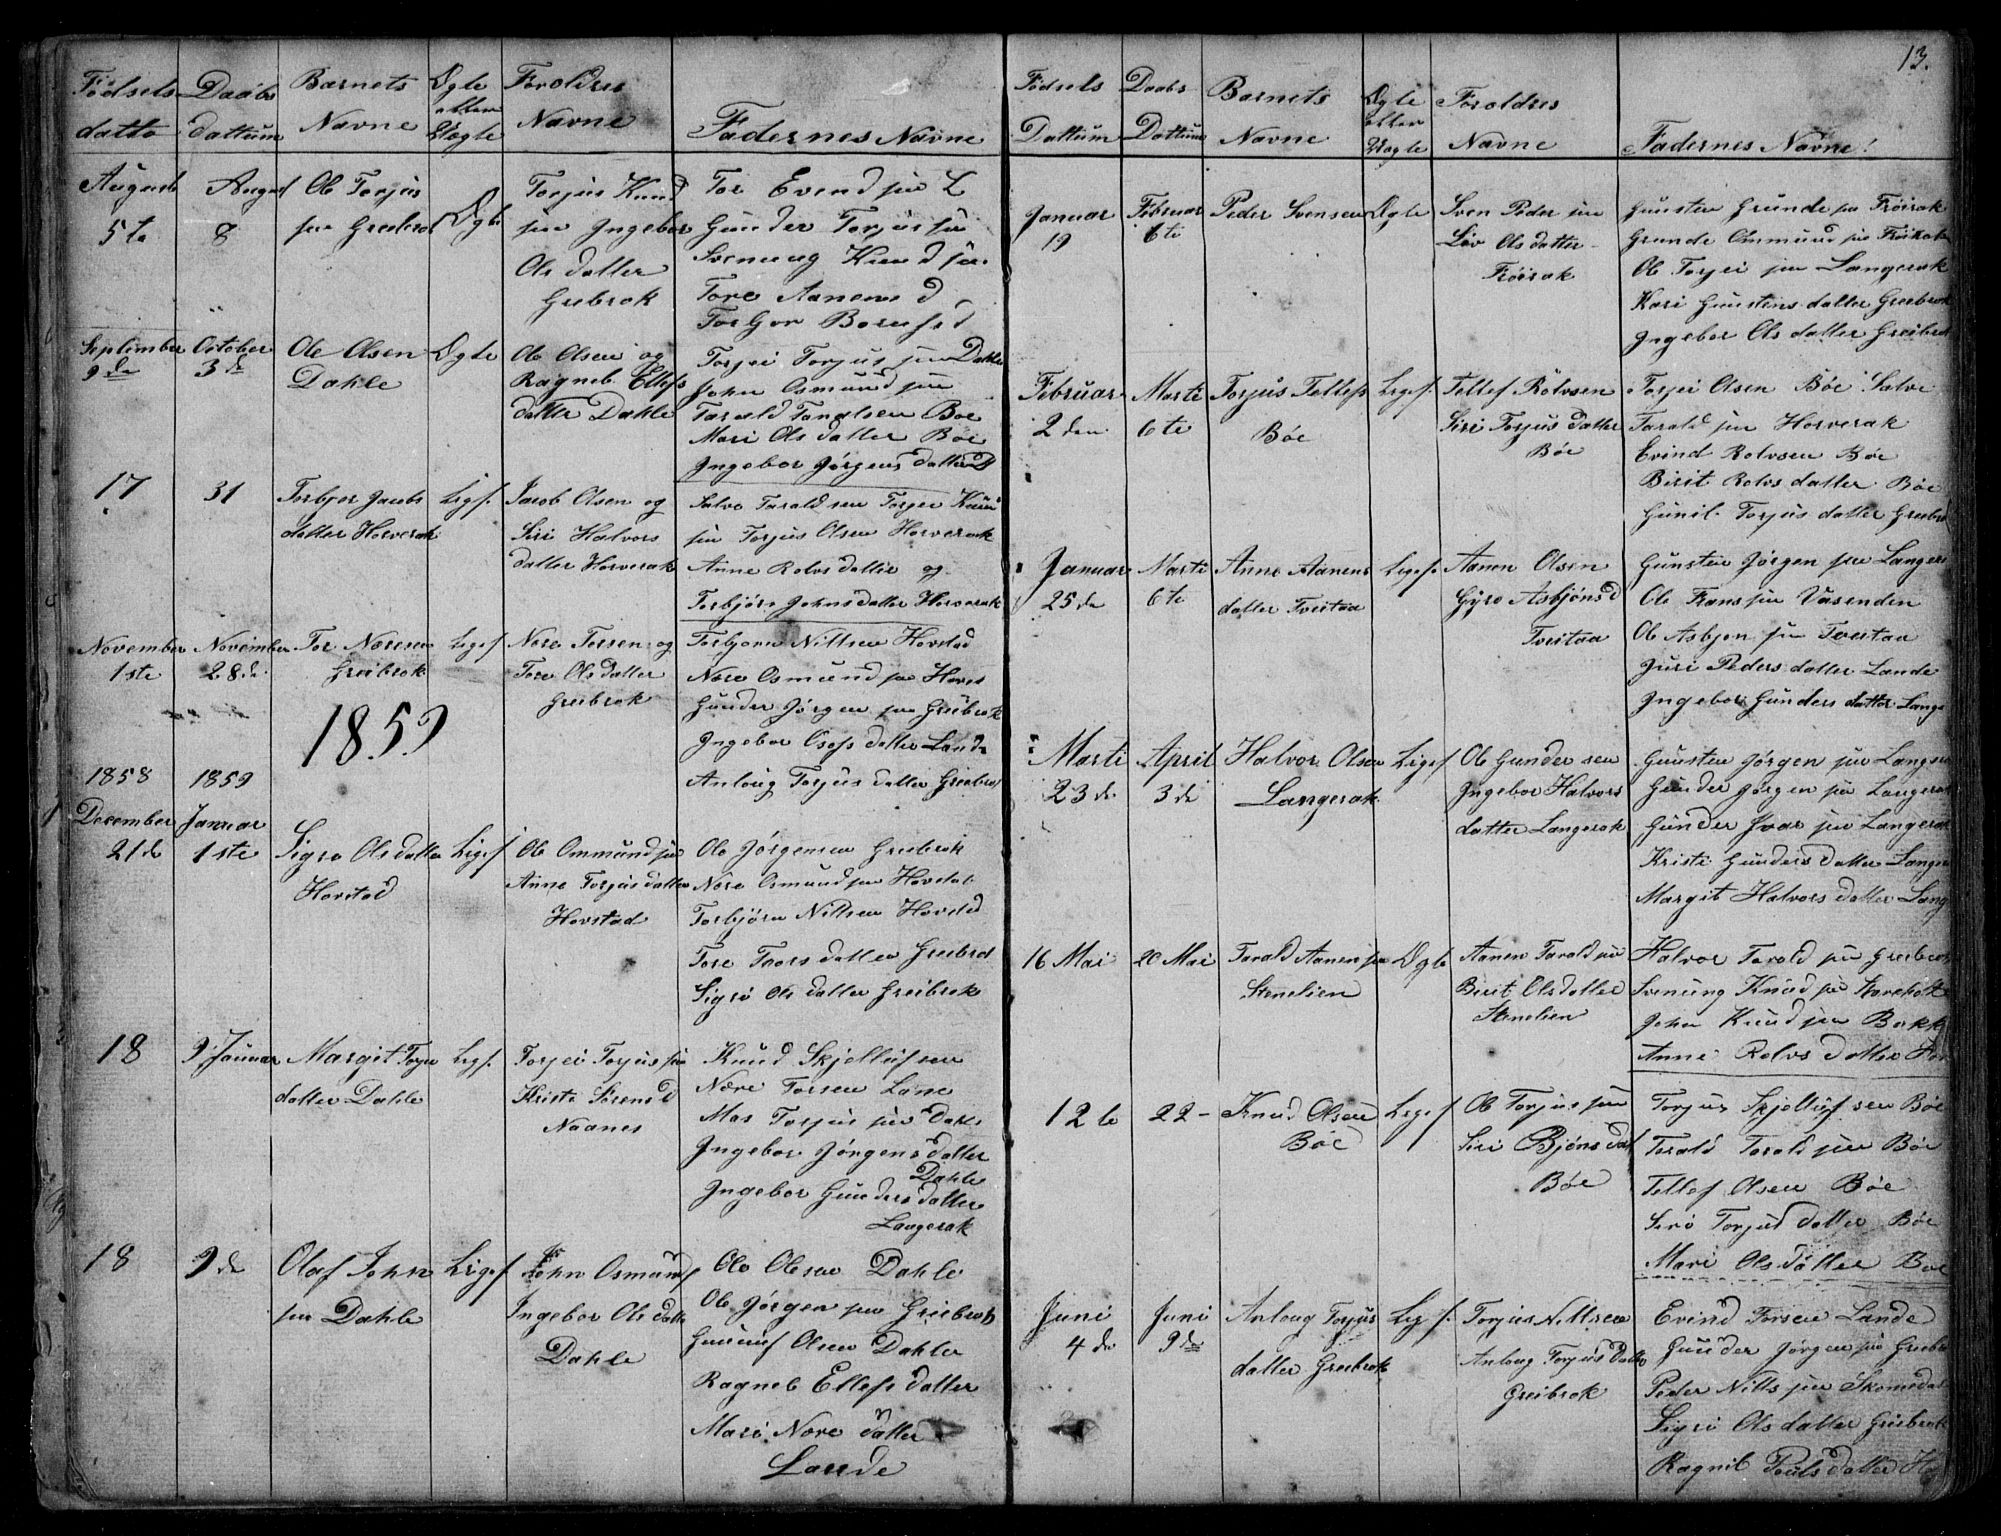 13.
Fødsels datto
Daabs dattum
Barnets Navne
Ægte eller Uægte
Foroldres Navne
Fadernes Navne
August 5te
August 8
Ole Torjus
sen Greibrok
Ægte
Torjus Knud
sen Ingebor
Ols datter
Greibrok
Tor Evend sen L
Gunder Torjus sen
Svenung Knud sen
Tore Aanens d
TorGor
September 9de
October 3de
Ole Olsen
Dahle
Ægte
Ole Olsen og
Ragneb Ellefs
datter Dahle
Torjei Torjus sen Dahle
John Osmund sen
Tarald Taraldsen Boe
Mari Ols datter Bøe
Ingebor Jørgens datter D
17
31
Torbjor Jacobs
datter Horverak
Liges.
Jacob Olsen og
Siri Halvors
datter Horverak
Salve Tarald sen Torjer Knud
sen Torjus Olsen Horverak
Anne Rolvs datter og
Torbjør Johns datter Horverak
November 1ste
November 28de
Tor Noresen
Greibrok
Ligesf
Nore Torsen og
Tore Ols datter
Greibrok
Torbjorn Nillsen Hovstad
Nore Osmund sen Hovst
Gunder Jørgen sen Greibrok
Ingebor Osefs datter Lande
Anloug Torjus datter Greibrok
1859
1858
December
21de
1859
Januar
1ste
Sigro Ols datter
Hovstad
Ligesf
Ole Ommund sen
Anne Torjus datter
Hovstad
Ole Jørgensen Greibrok
Nore Osmund sen Hovstad
Torbjørn Nillsen Hovstad
Tore Toors datter Greibrok
Sigrø Ols datter Greibrok
18
9 Januar
Margit Torjei
datter Dahle
Ligs.
Torjei Torjus sen
Kristi Sørens d
Naanes
Knud Skjellufsen
Nore Torsen Lane
Mas Torjus sen Dahle
Ingebor Jørgens datter
Dahle
Ingebor Gunders datter
Langerak
18
9de
Olaf John
sen Dahle
Ligesf
John Osmunds
Ingebor Ols datter
Dahle
Ole Olsen Dahle
Ole Jørgen sen Greibrok
Gunuf Olsen Dahle
Ragneb Ellefs datter
Mari Nore datter
Lande
Fødsels Dattum
Daabs Dattum
Barnets Navne
Ægte eller Uægte
Foroldres Navne
Fadernes Navne!
Januar 19
Februar 6te
Peder Svensen
Ægte
Sven Peder sen
Liv Ols datter
Frøirak
Gunsten Grunde sen Frøirak
Grunde Ommund sen Frøirak
Ole Torjei sen Langerak
Kari Gunstens datter Greibrok
Ingebor Ols datter Greibrok
Februar 2den
Marti 6te
Torjus Tellefs
Bøe
Ligesf.
Tellef Rolvsen
Siri Torjus datter
Bøe
Torjei Olsen Bøe Salve
Tarald sen Horverak
Evind Rolvsen Bøe
Birit Rolvs datter Bøe
Gunil Torjus datter Greibrok
Januar 25de
Marti 6te
Anne Aanens
datter Tveitaa
Ligesf.
Aanen Olsen
Gyro Asbjøns d
Tveitaa
Gunsten Jørgen sen Langerak
Ole Frans sen Vasenden
Ole Asbjøn sen Tveitaa
Juri Peders datter Lande
Ingebor Gunders datter Lange
Marti 23de
April 3de
Halvor Olsen
Langerak
Ligesf
Ole Gunder sen
Ingebor Halvors
datter Langerak
Gunsten Jørgen sen Langerak
Gunder Jørgen sen Langerak
Gunder Ivar sen Langerak
Kristi Gunders datter Lange
Margit Halvors datter Lang
16 Mai
20 Mai
Tarald Aanen sen
Stenelien
Ægte
Aanen Tarald sen
Birit Ols datter
Stenelien
Halvor Tarald sen Greibrok
Svenung Knud sen
John Knud sen Bakk
Anne Rolvs datter Hor
12te
22
Knud Olsen
Bøe
Ligesf
Ole Torjus sen
Siri Bjøns dat
Bøe
Torjus Skjelluf sen Bøe
Tarald Tarald sen Bøe
Tellef Olsen Bøe
Sirø Torjus datter Bøe
Mari Ols datter Boe
Juni 4de
Juni 9de
Anloug Torjus
datter Greibrok
Ligsf.
Torjus Nillsen
Anloug Torjus datter
Greibrok
Evind Torsen Lande
Gunder Jørgen sen Greibr
Peder Nills sen Skomedal
Sigri Ols datter Greibrok
Ragnil Pouls datter Ho